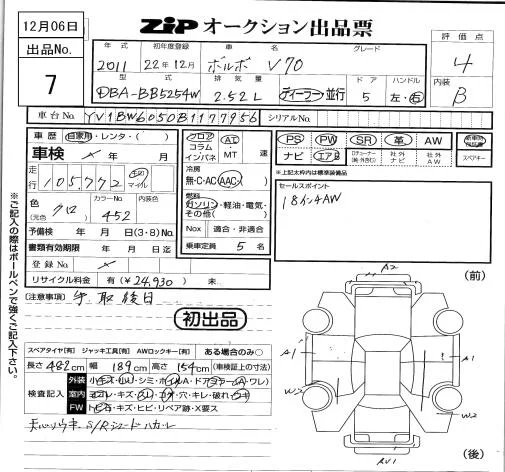 12月06日
ZiP オークション出品票
出品No.
7
年式 初年度登録 車名 グレード
2011 22年12月 ボルボ V70
型式 排気量 ドア ハンドル
DBA-BB5254W 2.52L ディーラー・並行 5 左・右
評価点
4
内装
B
車台No. YV1BW6050B1177956 シリアルNo.
車歴 自家用・レンタ・( )
車検
走行 105,772 キロ マイル
色 (元色) クロ カラーNo. 452 内装色
予備検 年 月 日(3・8)No.
書類有効期限 年 月 日迄
登録No.
リサイクル料金 有(¥24,930) 未
フロア コラム インパネ
AT・MT 速
冷房
無・C・AC・AAC
燃料
ガソリン・軽油・電気・その他( )
Nox 適合・非適合
乗車定員 5 名
PS PW SR 革 AW
ナビ エアB 社外ナビ 社外AW
スペアキー
※上記太枠内は標準装備品
セールスポイント
18インチAW
※ご記入の際はボールペンで強くご記入下さい。
[注意事項]
初出品
スペアタイヤ[有] ジャッキ工具[有] AWロックキー[有] ある場合のみ○
長さ 482cm 幅 189cm 高さ 154cm (車検証上の寸法)
検査記入
外装
室内
FW
トビ石・キズ・ヒビ・リペア跡・X要ス
(前)
A2
A1
A1
W2
W2
(後)